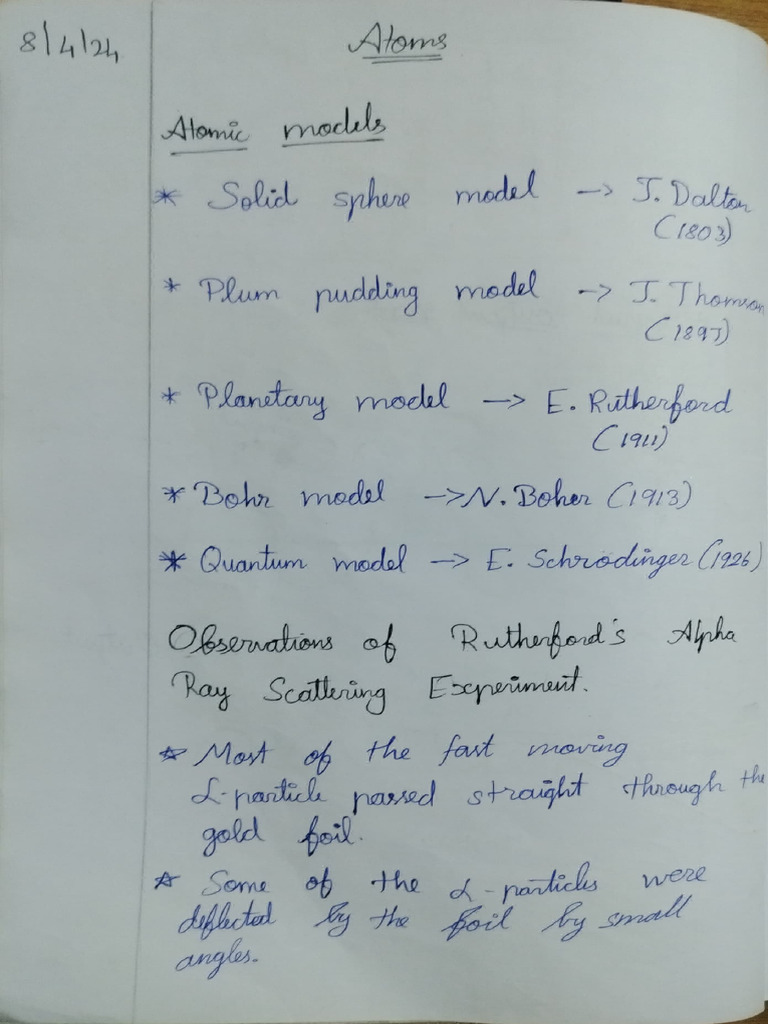 8/4/24
Atoms
Atomic models
* Solid sphere model -> J. Dalton
(1803)
* Plum pudding model -> J. Thomson
(1897)
* Planetary model -> E. Rutherford
(1911)
* Bohr model -> N. Boher (1913)
* Quantum model -> E. Schrodinger (1926)
Observations of Rutherford's Alpha
Ray Scattering Experiment.
* Most of the fast moving
α-particle passed straight through the
gold foil.
* Some of the α-particles were
deflected by the foil by small
angles.